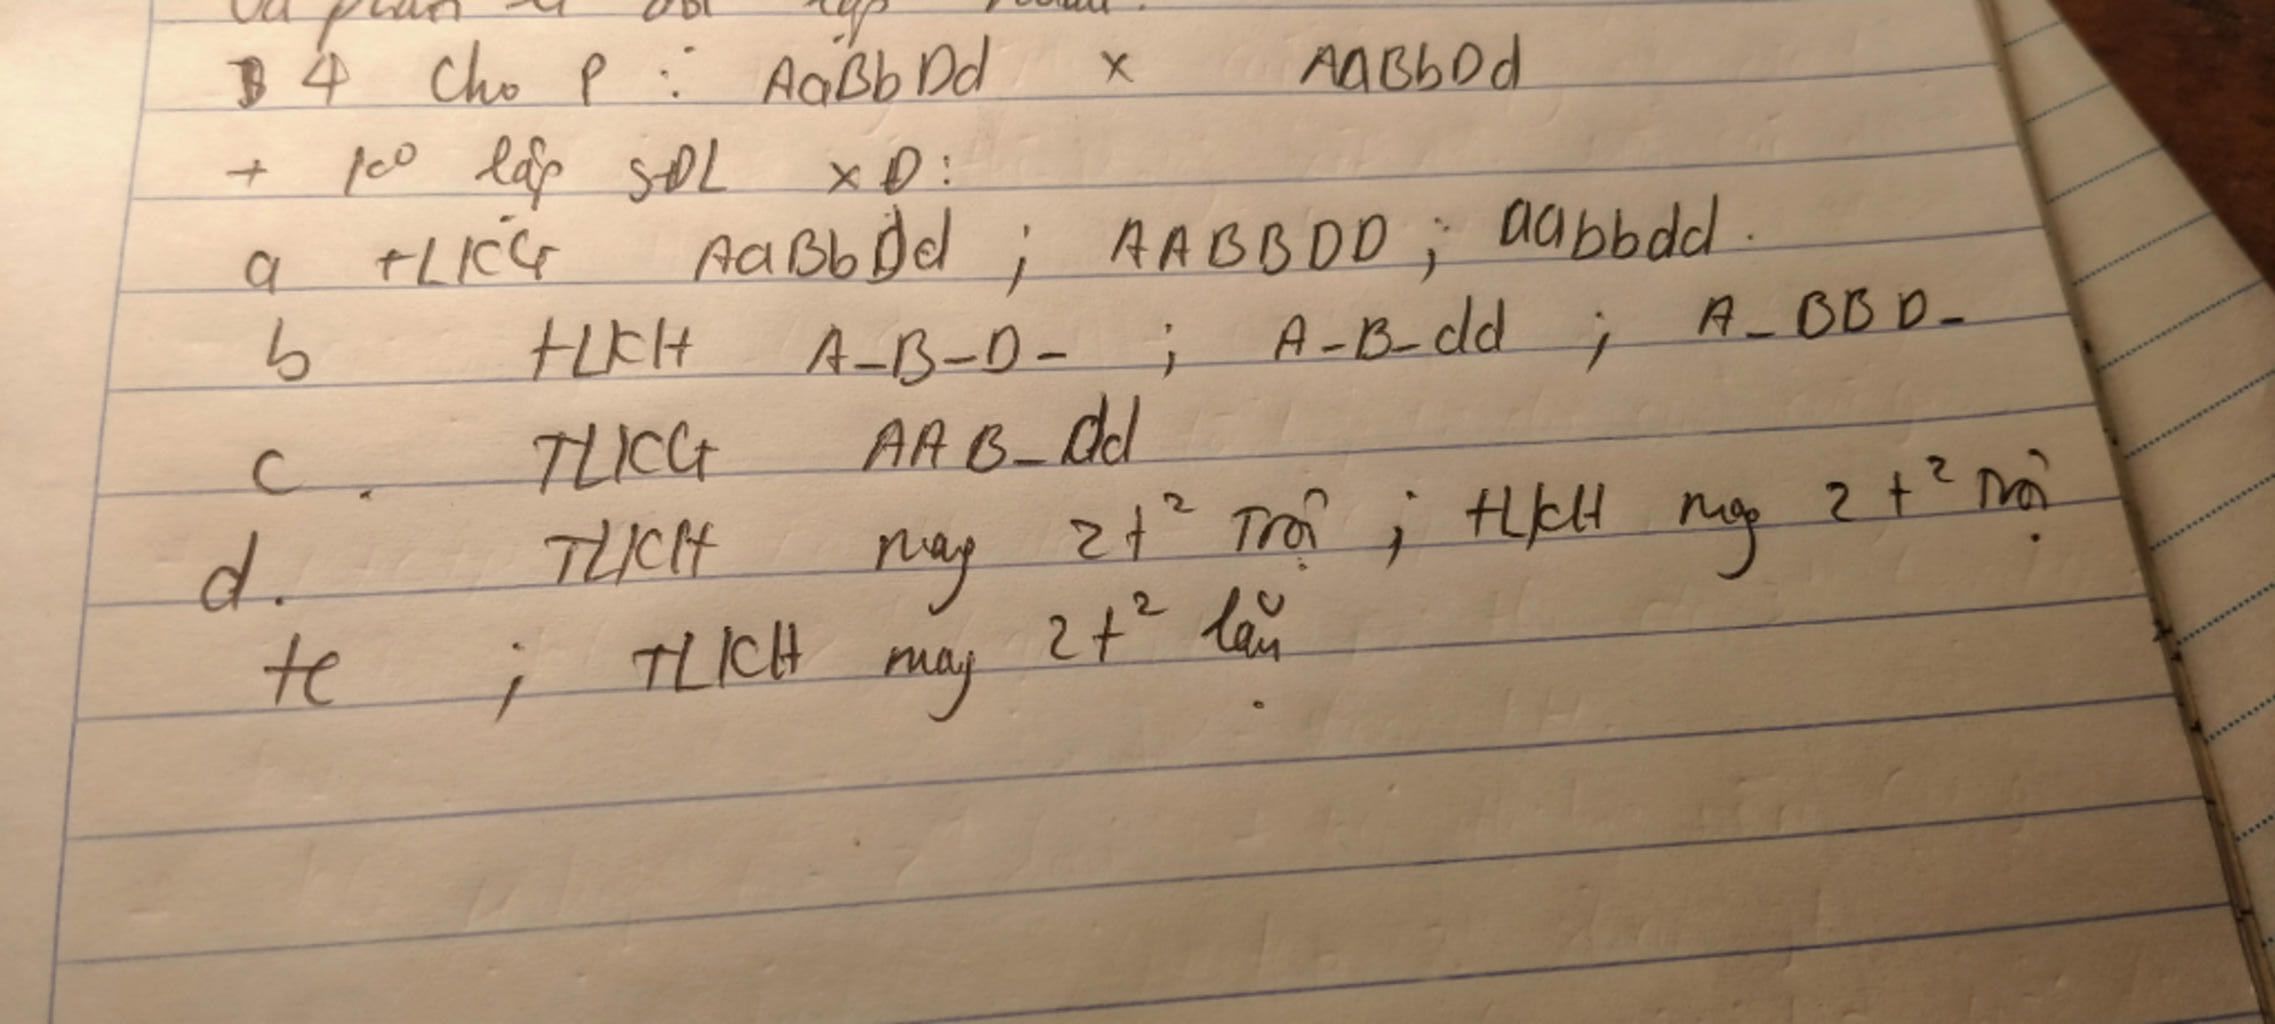 và phân li độc lập nhau.
B4 Cho P : AaBbDd x AaBbDd
+ ko lập SĐL xĐ:
a TLKG AaBbDd ; AABBDD ; aabbdd.
b TLKH A-B-D- ; A-B-dd ; A-BBD-
c. TLKG AAB-dd
d. TLKH mag 2t² Trội ; TLKH mag 2t² Trội.
te ; TLKH mag 2t² lặn